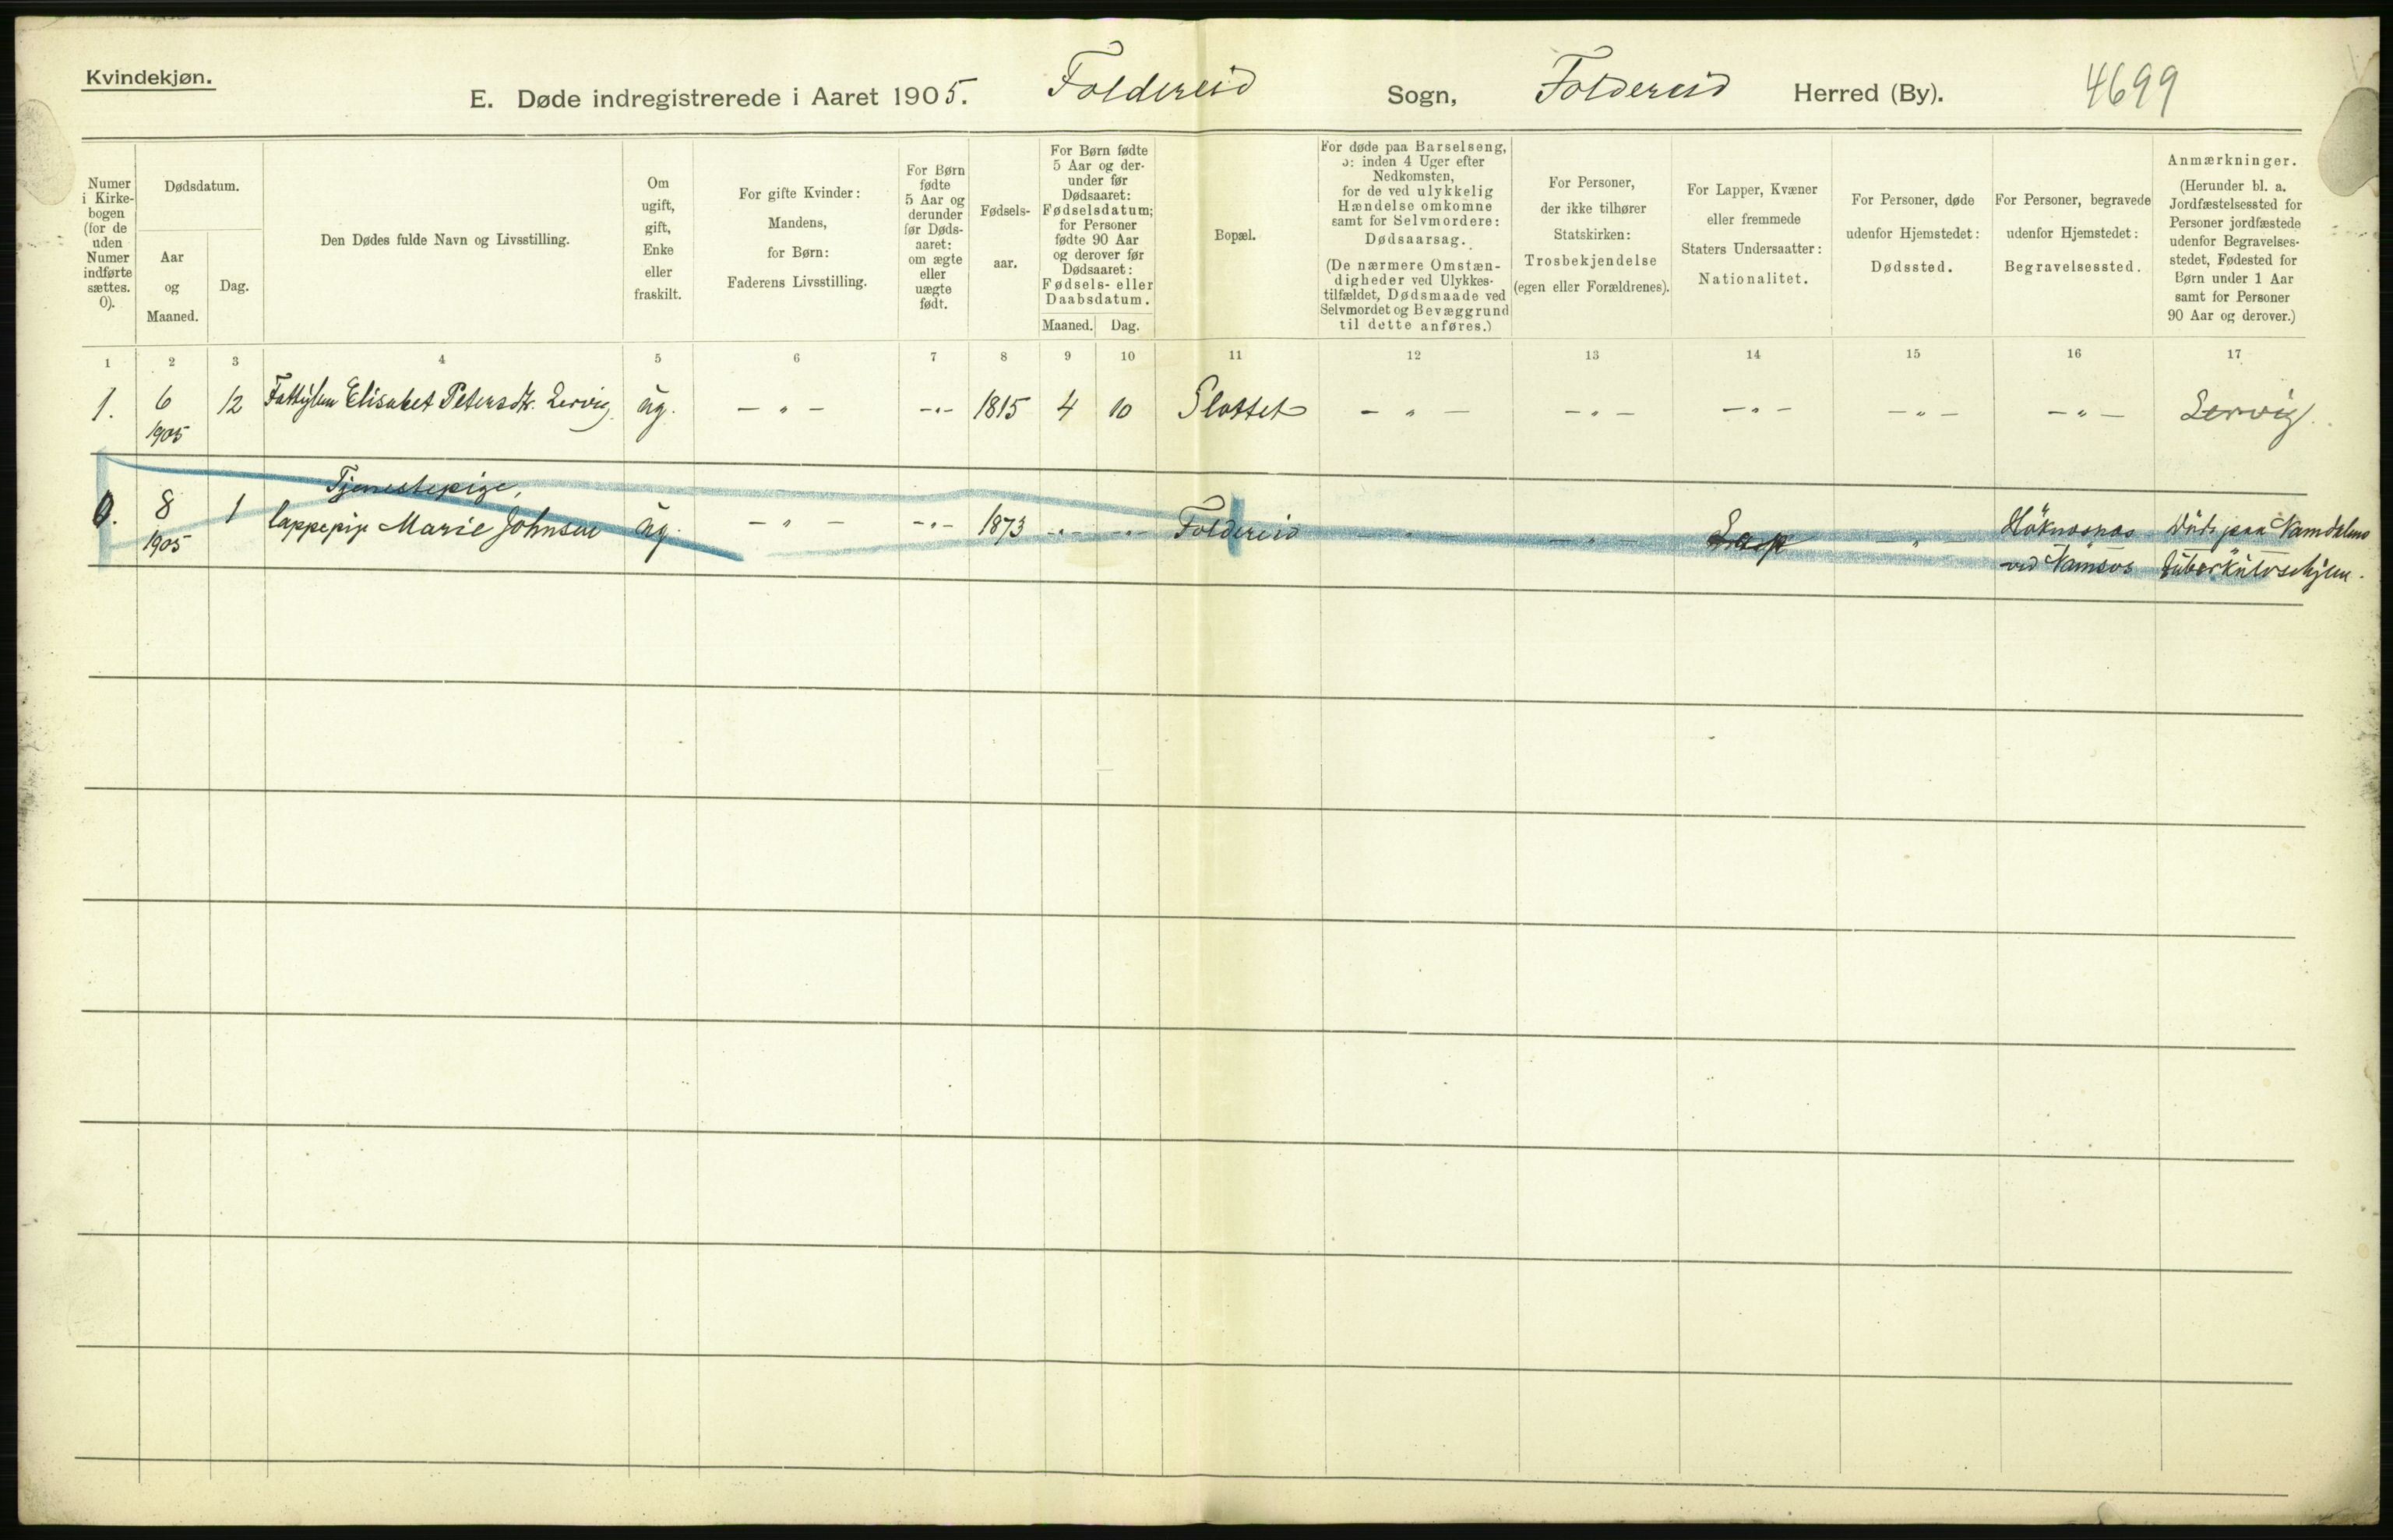 Kvindekjøn.
E. Døde indregistrerede i Aaret 1905. Foldereid Sogn, Foldereid Herred (By). 4699
Numer
i Kirke-
bogen
(for de
uden
Numer
indførte
sættes.
0).
Dødsdatum.
Aar
og
Maaned.
Dag.
Den Dødes fulde Navn og Livsstilling.
Om
ugift,
gift,
Enke
eller
fraskilt.
For gifte Kvinder:
Mandens,
for Børn:
Faderens Livsstilling.
For Børn
fødte
5 Aar og
derunder
før Døds-
aaret:
om ægte
eller
uægte
født.
Fødsels-
aar.
For Børn fødte
5 Aar og der-
under før
Dødsaaret:
Fødselsdatum;
for Personer
fødte 90 Aar
og derover før
Dødsaaret:
Fødsels- eller
Daabsdatum.
Maaned. Dag.
Bopæl.
For døde paa Barselseng,
ɔ: inden 4 Uger efter
Nedkomsten,
for de ved ulykkelig
Hændelse omkomne
samt for Selvmordere:
Dødsaarsag.
(De nærmere Omstæn-
digheder ved Ulykkes-
tilfældet, Dødsmaade ved
Selvmordet og Bevæggrund
til dette anføres.)
For Personer,
der ikke tilhører
Statskirken:
Trosbekjendelse
(egen eller Forældrenes).
For Lapper, Kvæner
eller fremmede
Staters Undersaatter:
Nationalitet.
For Personer, døde
udenfor Hjemstedet:
Dødssted.
For Personer, begravede
udenfor Hjemstedet:
Begravelsessted.
Anmærkninger.
(Herunder bl. a.
Jordfæstelsessted for
Personer jordfæstede
udenfor Begravelses-
stedet, Fødested for
Børn under 1 Aar
samt for Personer
90 Aar og derover.)
1 2 3 4 5 6 7 8 9 10 11 12 13 14 15 16 17
1. 6 12 Elisabet Petersdtr. Lervig ug. — " — -"- 1815 4 10 Slottet — " — — " — — " — — " — — " — Lervig.
1905
Tjenestepige,
0. 8 1 lappepige Marie Johnsen ug. — " — -"- 1873 -"- -"- Foldereid — " — — " — Lap — " — Höknesnes Död paa Namdalens
1905 ved Namsos tuberkulosehjem.